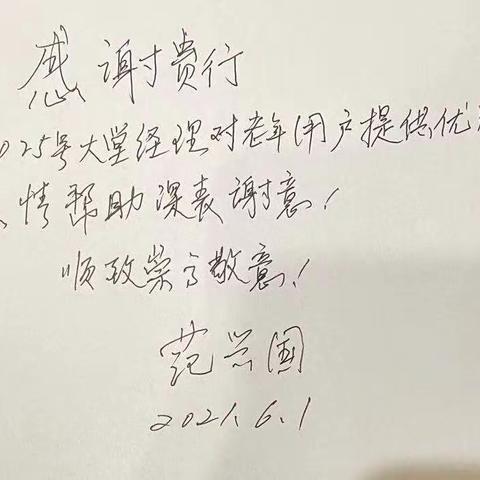 感谢贵行
025号大堂经理对老年用户提供优
情帮助深表谢意！
顺致崇高敬意！
范 国
2021.6.1